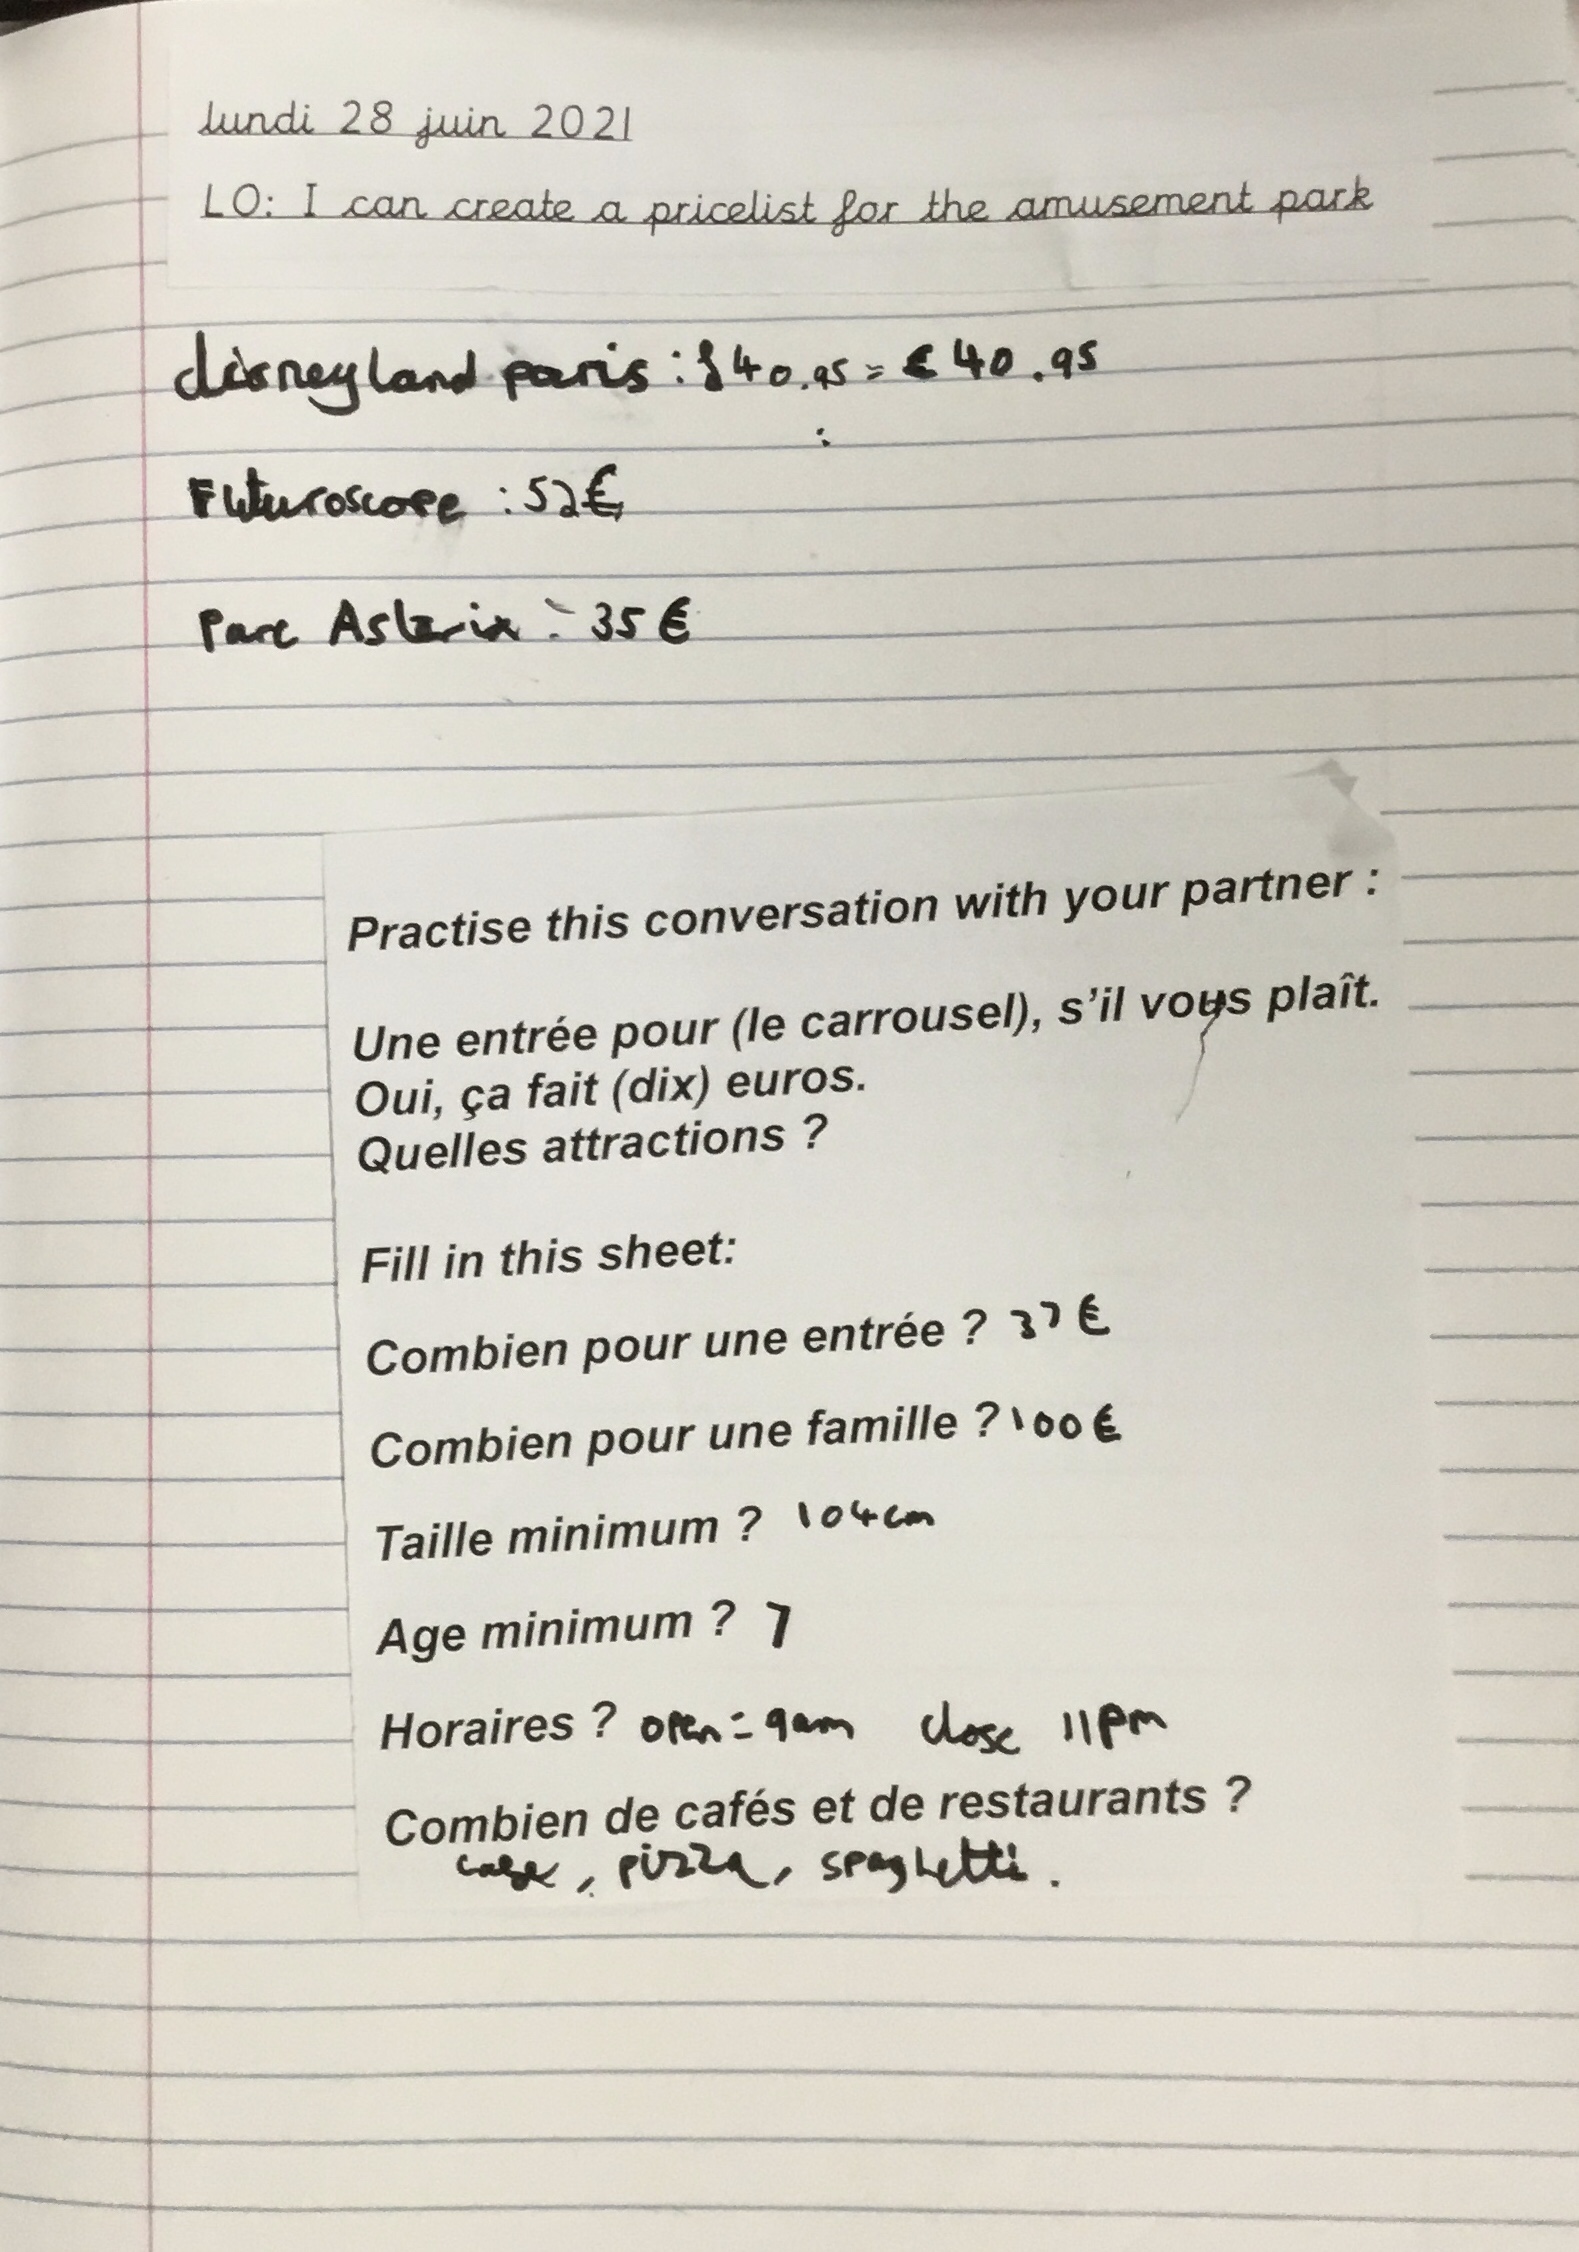 lundi 28 juin 2021
LO: I can create a pricelist for the amusement park
disneyland paris : £40.95 = €40.95
Futuroscope : 52€
Parc Asterix : 35€
Practise this conversation with your partner :
Une entrée pour (le carrousel), s'il vous plaît.
Oui, ça fait (dix) euros.
Quelles attractions ?
Fill in this sheet:
Combien pour une entrée ? 37€
Combien pour une famille ? 100€
Taille minimum ? 104cm
Age minimum ? 7
Horaires ? open = 9am close 11pm
Combien de cafés et de restaurants ?
, pizza, spaghetti.